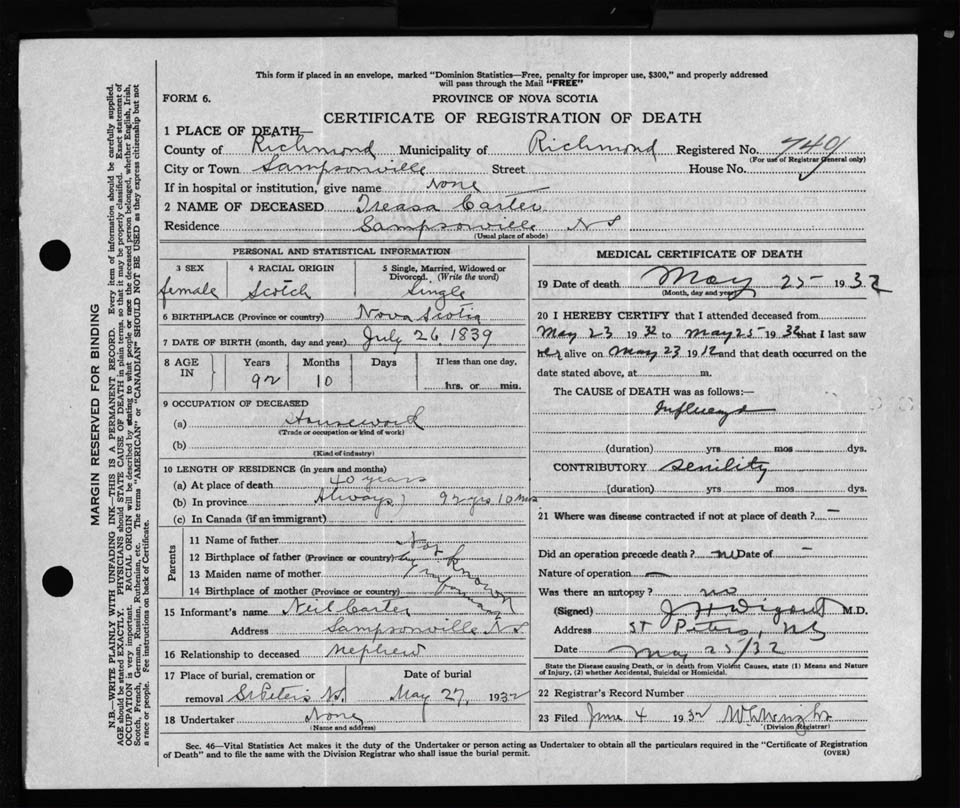 This form if placed in an envelope, marked "Dominion Statistics—Free, penalty for improper use, $300," and properly addressed
will pass through the Mail "FREE"
FORM 6.
PROVINCE OF NOVA SCOTIA
CERTIFICATE OF REGISTRATION OF DEATH
1 PLACE OF DEATH—
County of Richmond Municipality of Richmond Registered No. 7401
(For use of Registrar General only)
City or Town Sampsonville Street House No.
If in hospital or institution, give name None
2 NAME OF DECEASED Treasa Carter
Residence Sampsonville NS
(Usual place of abode)
PERSONAL AND STATISTICAL INFORMATION
3 SEX 4 RACIAL ORIGIN 5 Single, Married, Widowed or
Divorced. (Write the word)
female Scotch Single
6 BIRTHPLACE (Province or country) Nova Scotia
7 DATE OF BIRTH (month, day and year) July 26, 1839
8 AGE IN Years Months Days If less than one day,
92 10 hrs. or min.
9 OCCUPATION OF DECEASED
(a) Housework
(Trade or occupation or kind of work)
(b)
(Kind of industry)
10 LENGTH OF RESIDENCE (in years and months)
(a) At place of death 40 years
(b) In province Always) 92 yrs 10 mos
(c) In Canada (if an immigrant)
Parents
11 Name of father
12 Birthplace of father (Province or country)
13 Maiden name of mother
14 Birthplace of mother (Province or country)
Not known by informant
15 Informant's name Neil Carter
Address Sampsonville NS
16 Relationship to deceased nephew
17 Place of burial, cremation or Date of burial
removal St Peters NS. May 27, 1932
18 Undertaker None
(Name and address)
MEDICAL CERTIFICATE OF DEATH
19 Date of death May 25 1932
(Month, day and year)
20 I HEREBY CERTIFY that I attended deceased from
May 23 1932 to May 25 1932 that I last saw
her alive on May 23 19 and that death occurred on the
date stated above, at m.
The CAUSE OF DEATH was as follows:
Influenza
(duration) yrs mos dys.
CONTRIBUTORY Senility
(duration) yrs mos dys.
21 Where was disease contracted if not at place of death? —
Did an operation precede death? no Date of -
Nature of operation —
Was there an autopsy? no
(Signed) M.D.
Address St Peters, NS
Date May 25/32
State the Disease causing Death, or in death from Violent Causes, state (1) Means and Nature
of Injury, (2) whether Accidental, Suicidal or Homicidal.
22 Registrar's Record Number
23 Filed June 4 1932
(Division Registrar)
Sec. 46—Vital Statistics Act makes it the duty of the Undertaker or person acting as Undertaker to obtain all the particulars required in the "Certificate of Registration
of Death" and to file the same with the Division Registrar who shall issue the burial permit.
(OVER)
MARGIN RESERVED FOR BINDING
N.B.—WRITE PLAINLY WITH UNFADING INK—THIS IS A PERMANENT RECORD. Every item of information should be carefully supplied.
AGE should be stated EXACTLY. PHYSICIANS should STATE CAUSE OF DEATH in plain terms, so that it may be properly classified. Exact statement of
OCCUPATION is very important. RACIAL ORIGIN will be described by stating to what people or race the deceased person belonged, whether English, Irish,
Scotch, French, German, Russian, Ruthenian, etc. The terms "AMERICAN" or "CANADIAN" SHOULD NOT BE USED as they express citizenship but not
a race or people. See instructions on back of Certificate.